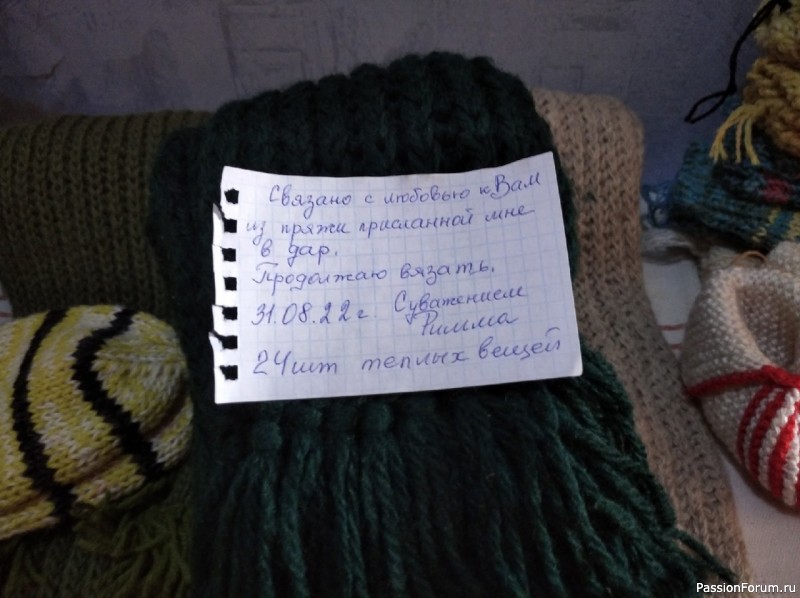 Связано с любовью к Вам
из пряжи присланной мне
в дар.
Продолжаю вязать.
31.08.22г. Суважением
Римма
24шт теплых вещей
PassionForum.ru